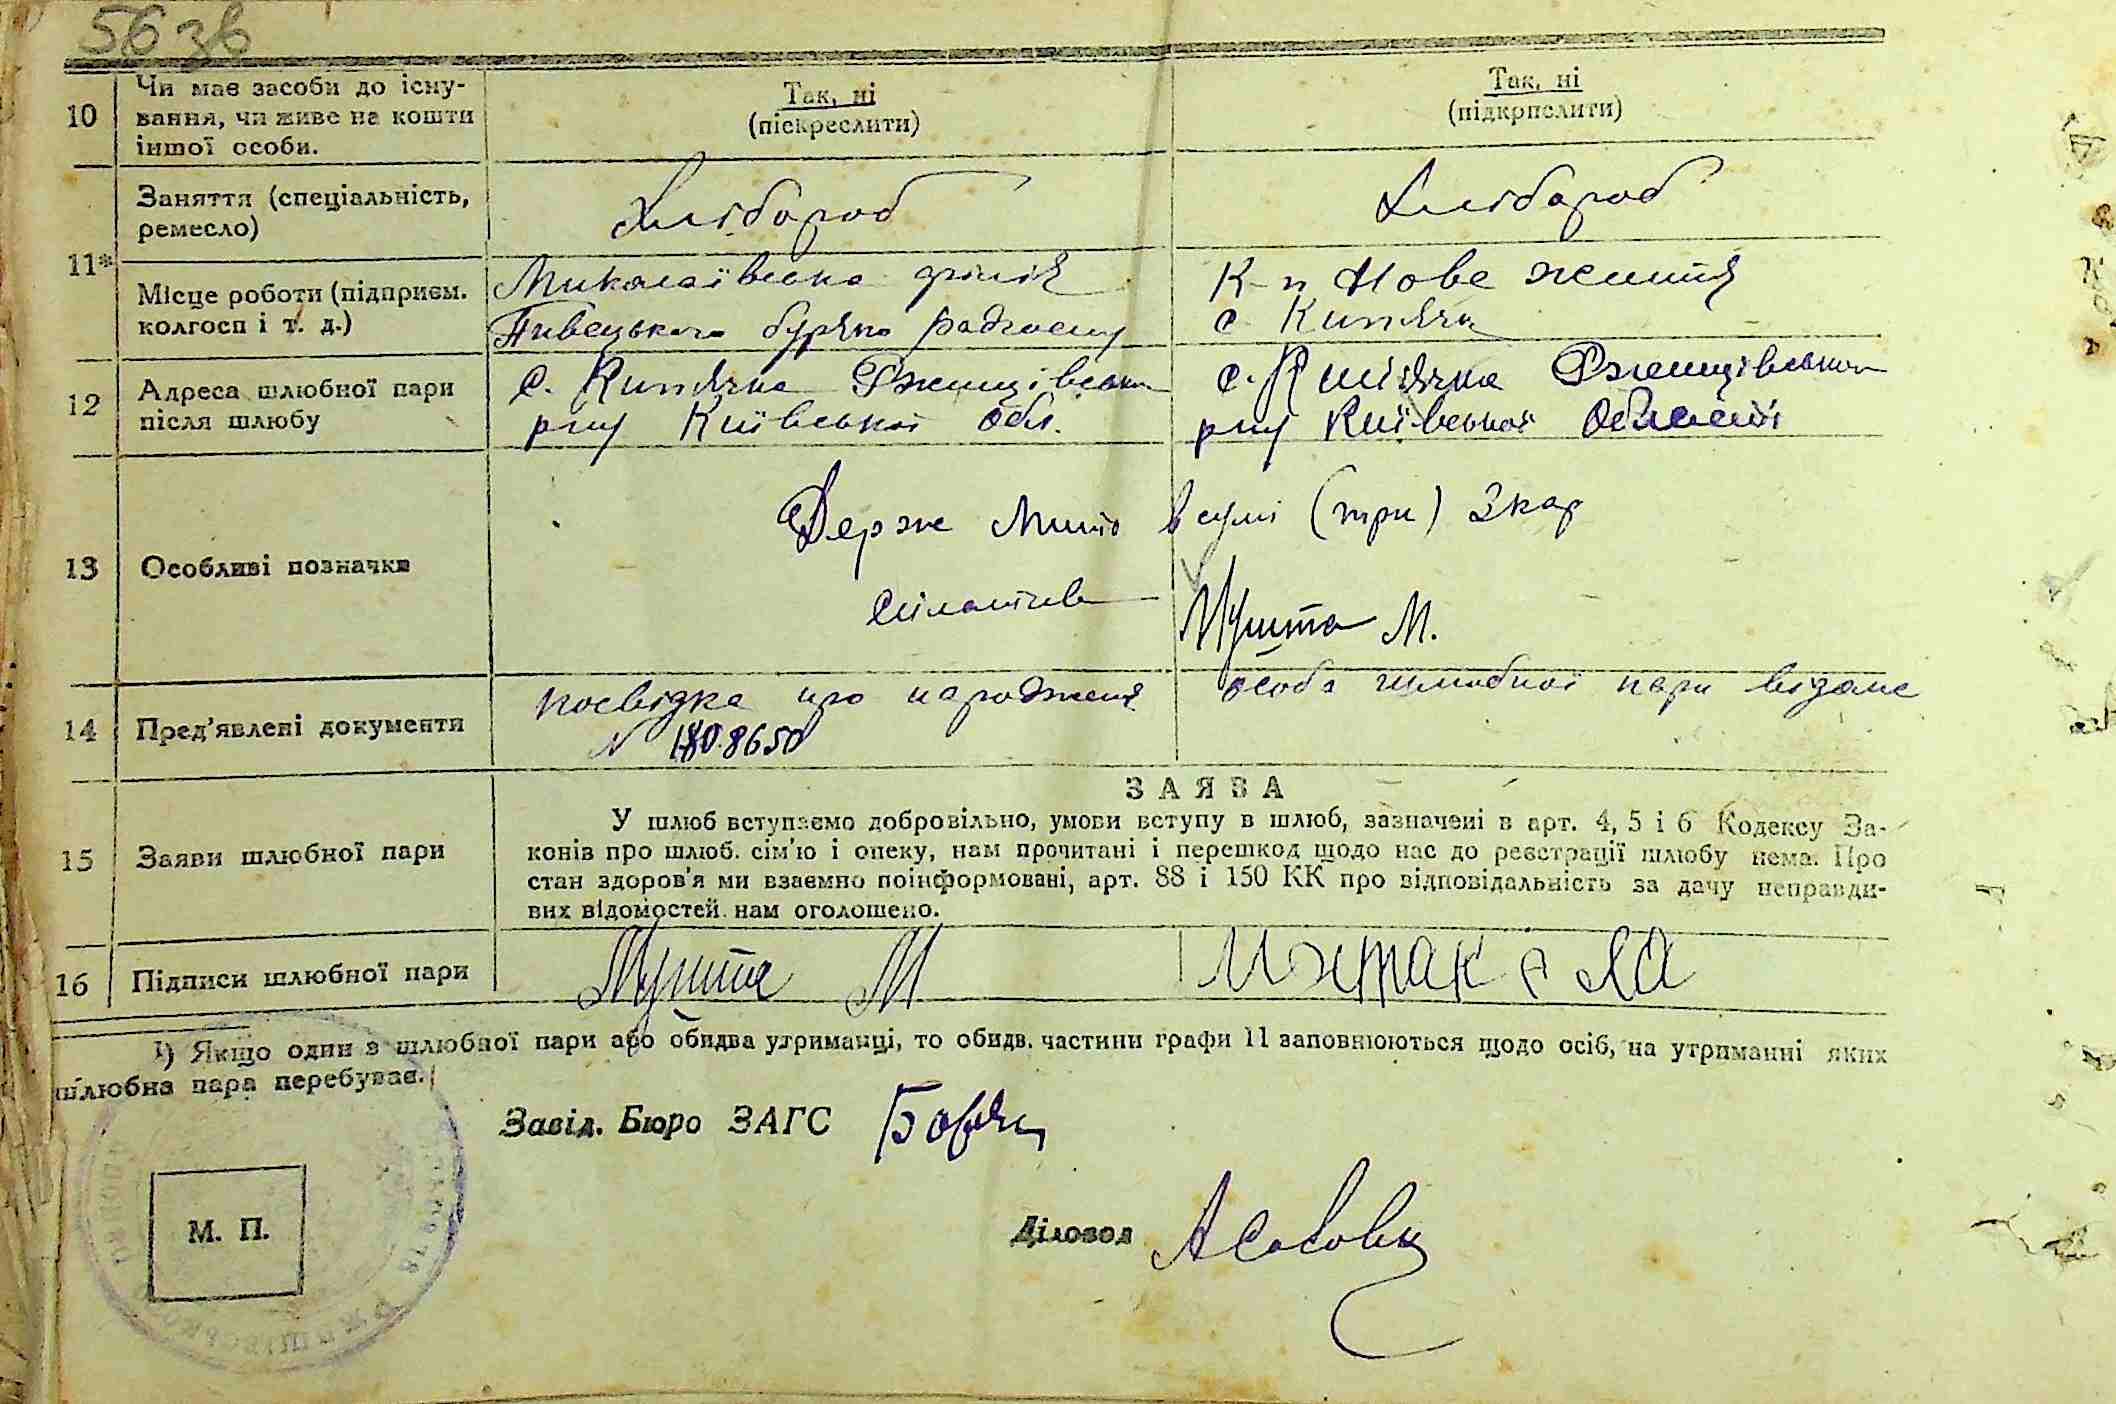 56 зв
10 Чи має засоби до існу-
вання, чи живе на кошти
іншої особи.
Так, ні
(піскреслити)
Так, ні
(підкрпслити)
11* Заняття (спеціальність,
ремесло)
Хлібороб
Хлібороб
Місце роботи (підприєм.
колгосп і т. д.)
Миколаївська філія
буряко радгоспу
К-п Нове життя
с. Кип'ячка
12 Адреса шлюбної пари
після шлюбу
с. Кип'ячка Ржищівська
р-ну Київської обл.
с. Кип'ячка Ржищівська
р-ну Київської області
13 Особливі позначки
Держ мито в сумі (три) 3 кар
сплатив
Мушта М.
14 Пред'явлені документи
посвідка про народженя
N 180.8650
особа шлюбної пари відома
15 Заяви шлюбної пари
ЗАЯВА
У шлюб вступаємо добровільно, умови вступу в шлюб, зазначені в арт. 4, 5 і 6 Кодексу За-
конів про шлюб. сім'ю і опеку, нам прочитані і перешкод щодо нас до реєстрації шлюбу нема. Про
стан здоров'я ми взаємно поінформовані, арт. 88 і 150 КК про відповідальність за дачу неправди-
вих відомостей нам оголошено.
16 Підписи шлюбної пари
Мушта М
1) Якщо один з шлюбної пари або обидва утриманці, то обидв. частини графи 11 заповнюються щодо осіб, на утриманні яких
шлюбна пара перебуває.
Завід. Бюро ЗАГС
М. П.
Діловод